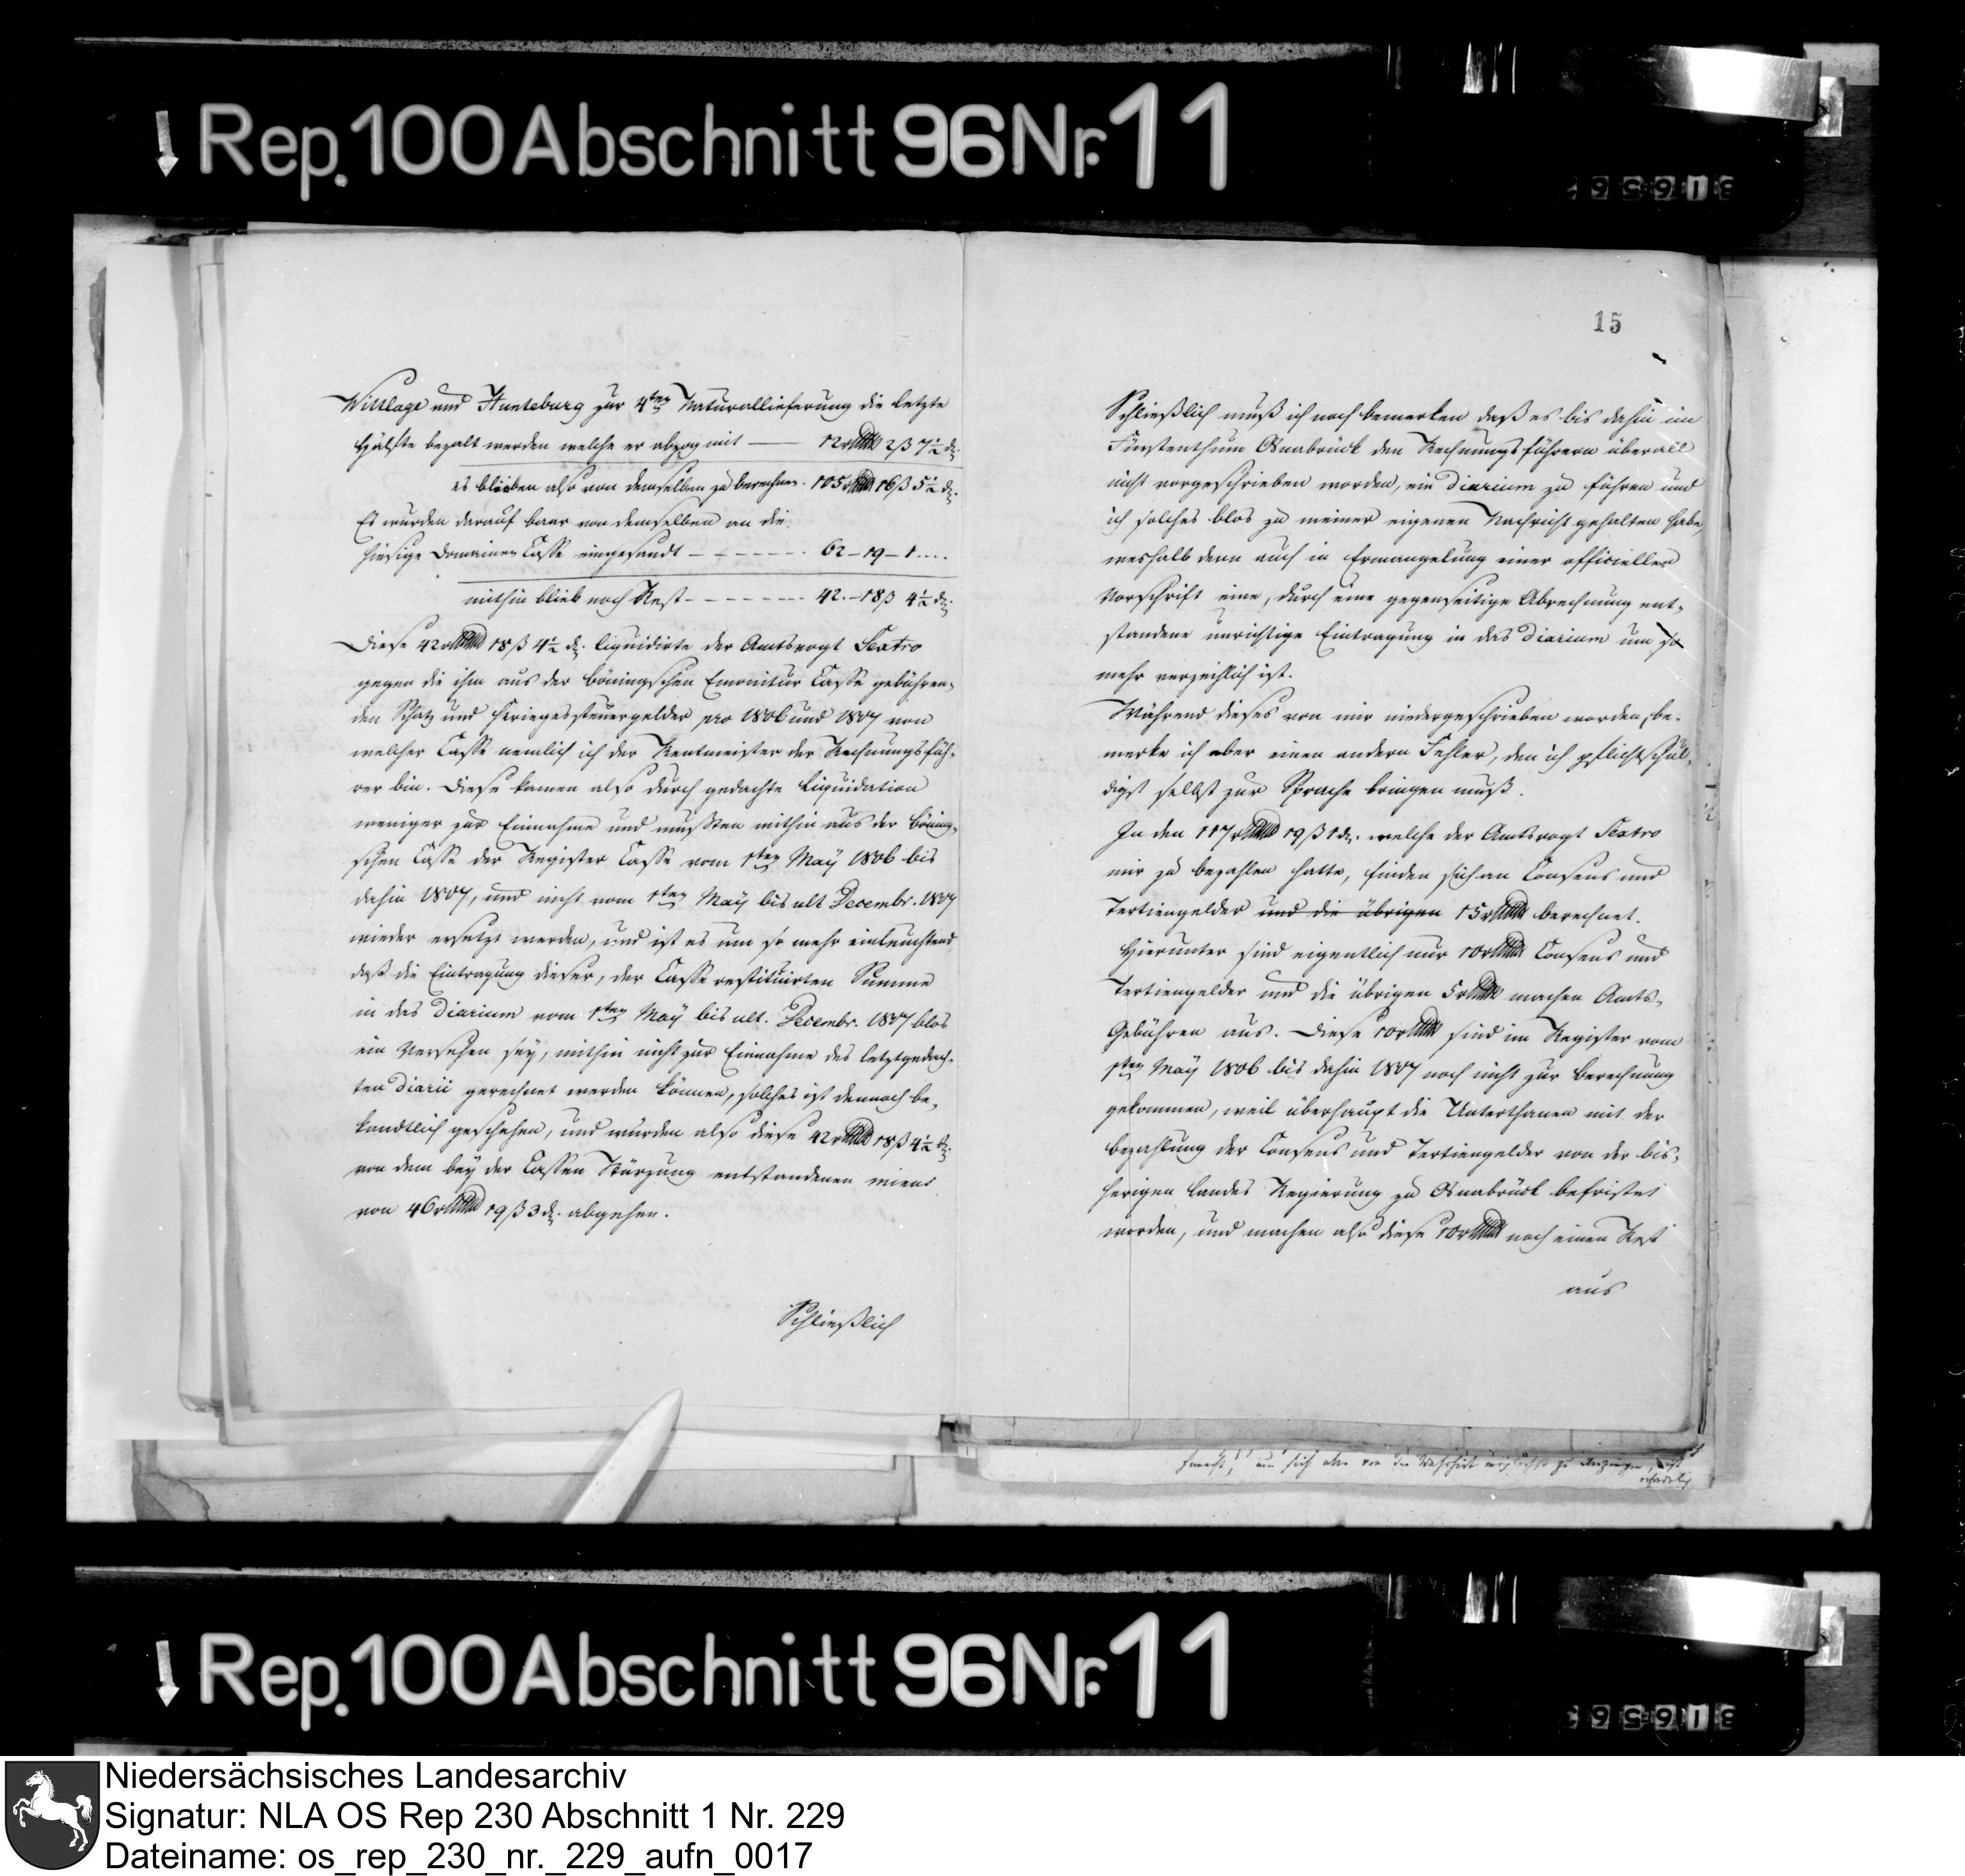 Rep. 100 Abschnitt 96 Nr. 11
15
Wittlage und Hunteburg zur 4ten Naturallieferung die letzte
Hälfte bezalt werden welche er abzog mit — 12 rthlr 2 ß 7½ d.
es blieben also von demselben zu berechnen. 105 rthlr 16 ß 5½ d.
Es wurden darauf baar von demselben an die
hiesige Domainen Casse eingesandt - - - - - - 62 – 19 – 1 ....
mithin blieb noch Rest - - - - - - - 42. – 18 ß 4½ d.
Diese 42 rthlr 18 ß 4½ d. liquidirte der Amtsvogt Sextro
gegen die ihm aus der böningschen Emonitur Casse gebühren-
den Schatz und Kriegessteuergelder pro 1806 und 1807 von
welcher Casse nemlich ich der Rentmeister der Rechnungsfüh-
rer bin. Diese kamen also durch gedachte Liquidation
weniger zur Einnahme und mußten mithin aus der böning-
schen Casse der Register Casse vom 1ten Maÿ 1806 bis
dahin 1807, und nicht vom 1ten Maÿ bis ult Decembr. 1807
wieder ersetzt werden, und ist es um so mehr einleuchtend
daß die Eintragung dieser, der Casse restituirten Summe
in das Diarium vom 1ten Maÿ bis ult. Decembr. 1807 blos
ein Versehen seÿ, mithin nicht zur Einnahme des letztgedach-
ten Diarii gerechnet werden können, solches ist dennoch be-
kandtlich geschehen, und würden also diese 42 rthlr 18 ß 4½ d.
von dem beÿ der Cassen Stürzung entstandenen minus
von 46 rthlr 19 ß 3 d. abgehen.
Schließlich
Schließlich muß ich noch bemerken daß es bis dahin im
Fürstenthum Osnabrück den Rechnungsführern überall
nicht vorgeschrieben worden, ein Diarium zu führen und
ich solches blos zu meiner eigenen Nachricht gehalten habe,
weshalb denn auch in Ermangelung einer officiellen
Vorschrift eine, durch eine gegenseitige Abrechnung ent-
standene unrichtige Eintragung in das Diarium um so
mehr verzeihlich ist.
Während dieses von mir niedergeschrieben worden, be-
merke ich aber einen andern Fehler, den ich pflichtschul-
digst selbst zur Sprache bringen muß.
In den 117 rthlr 19 ß 1 d. welche der Amtsvogt Sextro
mir zu bezahlen hatte, finden sich an Consens und
Tertiengelder und die übrigen 15 rthlr berechnet.
Hierunter sind eigentlich nur 10 rthlr Consens und
Tertiengelder und die übrigen 5 rthlr machen Amts-
Gebühren aus. Diese 10 rthlr sind im Register vom
1ten Maÿ 1806 bis dahin 1807 noch nicht zur Berechnung
gekommen, weil überhaupt die Unterthanen mit der
Bezahlung der Consens und Tertiengelder von der bis-
herigen Landes Regierung zu Osnabrück befristet
worden, und machen also diese 10 rthlr noch einen Rest
aus
Rep. 100 Abschnitt 96 Nr. 11
Niedersächsisches Landesarchiv
Signatur: NLA OS Rep 230 Abschnitt 1 Nr. 229
Dateiname: os_rep_230_nr._229_aufn_0017